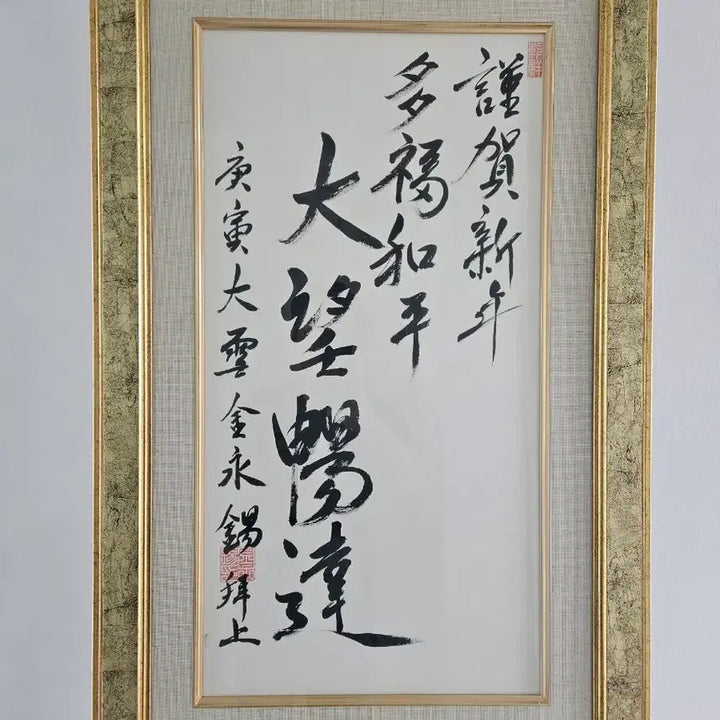 謹賀新年
多福和平
大望暢達
庚寅大雪金永錫拜上